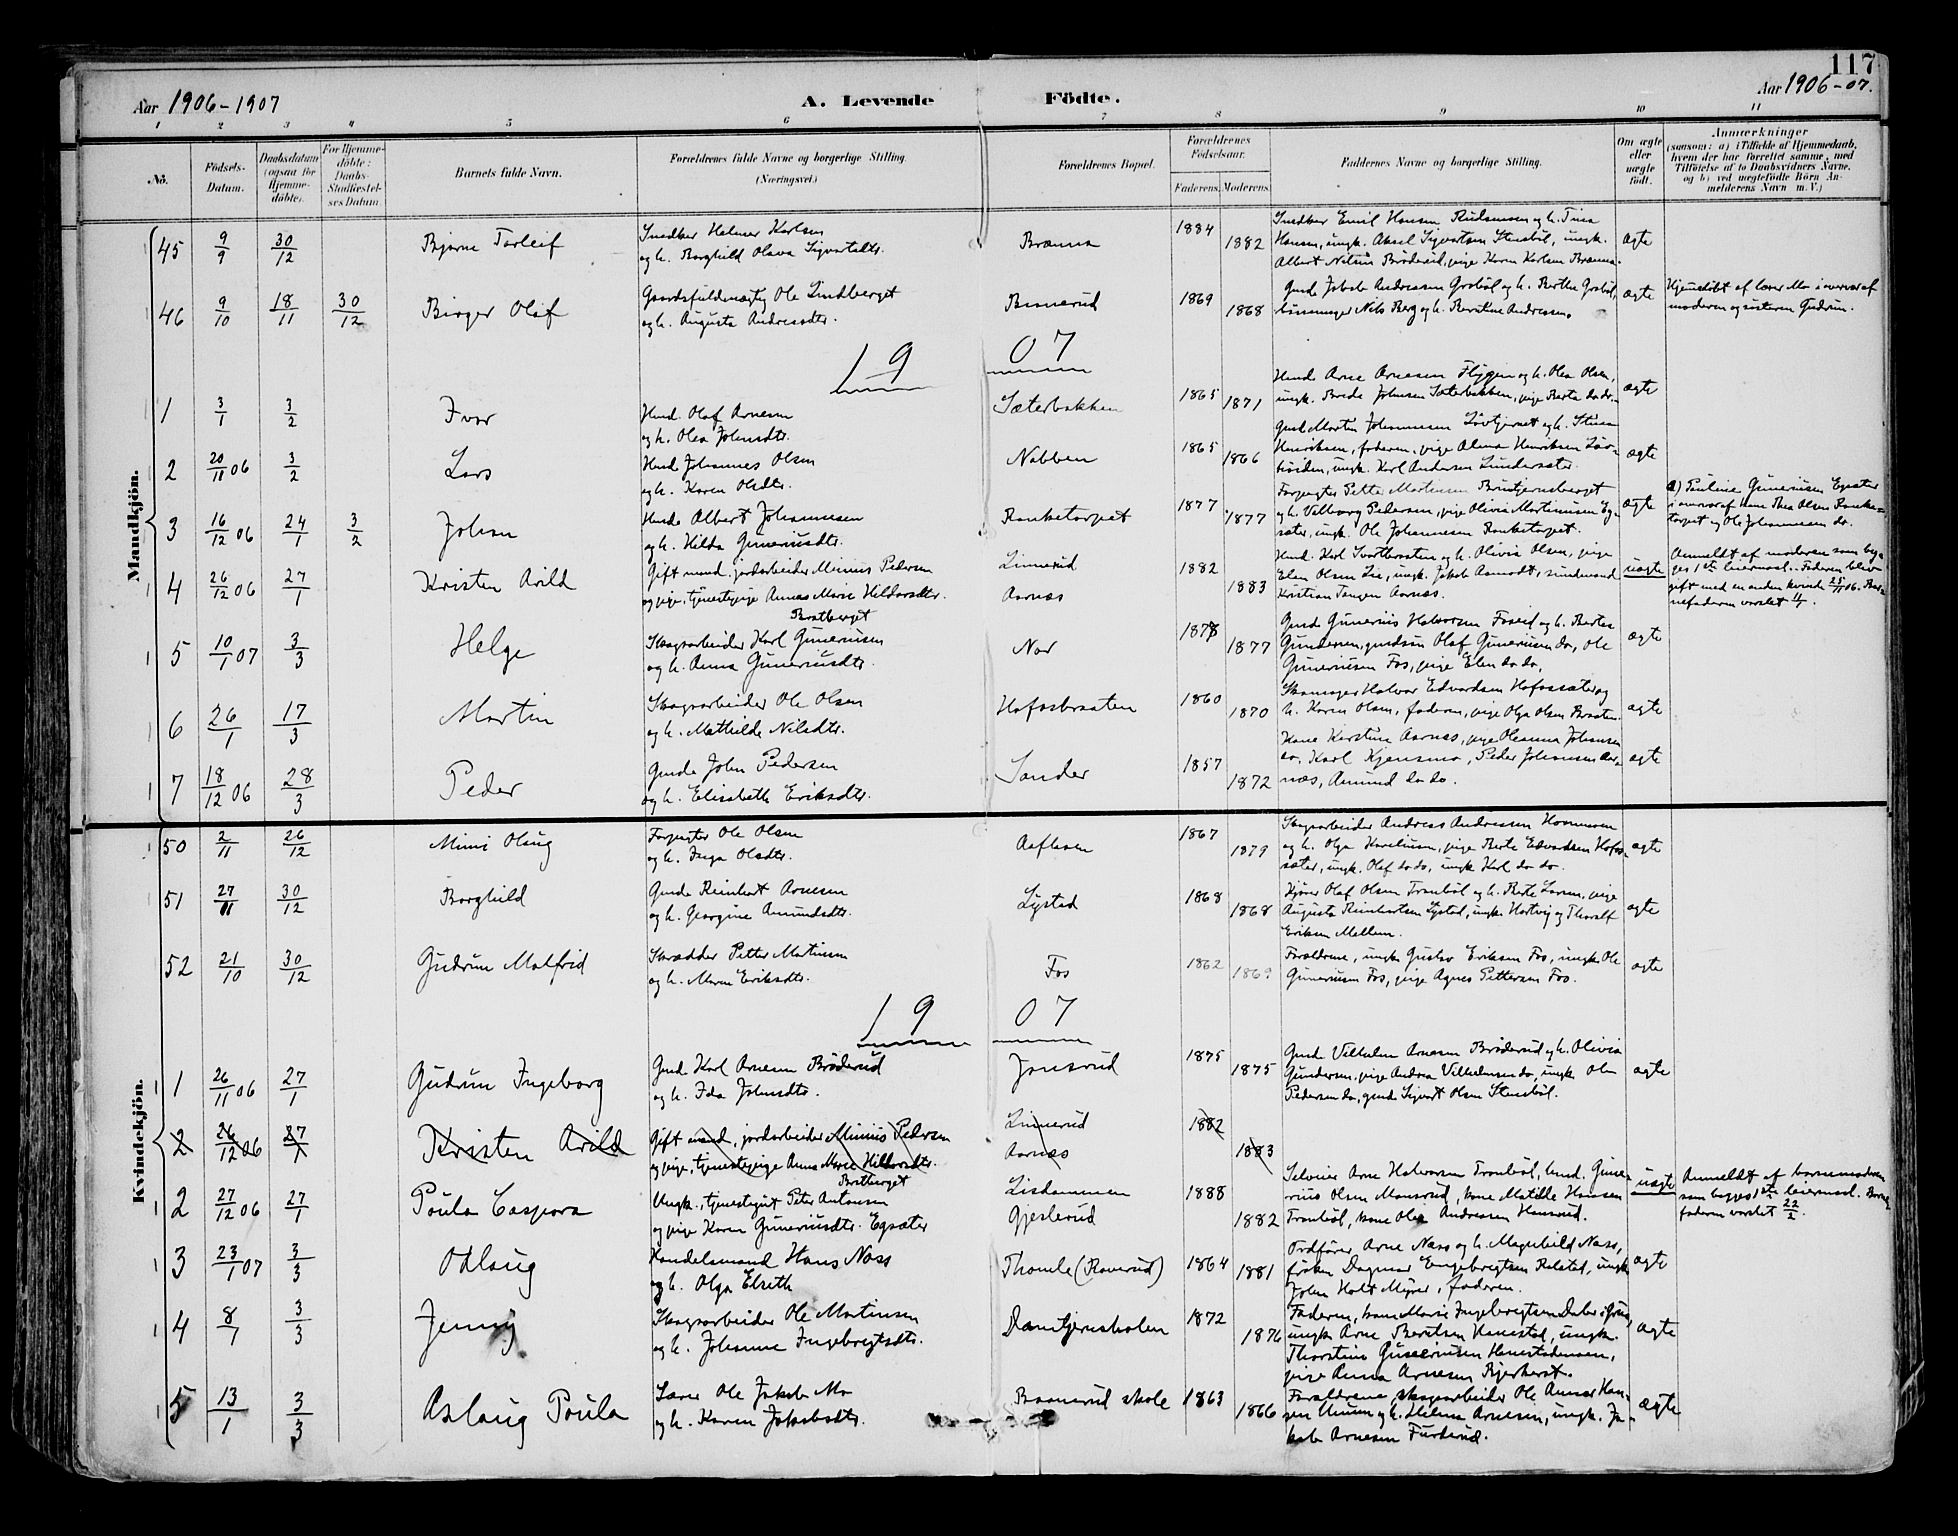 117
Aar 1906-1907 A. Levende Födte. Aar 1906-07.
1 2 3 4 5 6 7 8 9 10 11
Nö.
Födsels-Datum.
Daabsdatum (ogsaa for Hjemme-döbte).
For Hjemme-döbte: Daabs-Stadfæstel-ses Datum.
Barnets fulde Navn.
Forældrenes fulde Navne og borgerlige Stilling. (Næringsvei.)
Forældrenes Bopæl.
Forældrenes Födselsaar.
Faderens. Moderens.
Faddernes Navne og borgerlige Stilling.
Om ægte eller uægte födt.
Anmærkninger
(saasom: a) i Tilfælde af Hjemmedaab,
hvem der har forrettet samme, med
Tilföielse af to Daabsvidners Navne,
og b) ved uægtefödte Börn An-
melderens Navn m. V.)
Mandkjön.
45 9/9 30/12 Bjarne Torleif
Snedker Helmer Karlsen
og h. Borghild Olava Sigvartsdtr.
Brænna 1884 1882
Snedker Emil Hansen og h. Tina
Hansen, ungk. Aksel Sigvartsen Stensböl, ungk.
Albert Nelsius Bröderud, pige Karen Karlsen Brænna.
ægte
46 9/10 18/11 30/12 Birger Olaf
Gaardsfuldmægtig Ole Lindberget
og h. Augusta Andreasdtr.
1869 1868
Gmd Jakob Andreassen Grasböl og h. Berthe Grasböl,
Nils Berg og h. Berntine Andreassen.
ægte
Hjemdöbt af lærer Mo i overvær af
moderen og søsteren Gudrun.
19 07
1 3/1 3/2 Ivar
Hmd. Olaf Arnesen
og h. Olea Johnsdtr.
Sæterbakken 1865 1871
Hmd. Arne Arnesen Flygen og h. Olea Olsen,
ungk. Brede Johnsen Sæterbakken, pige Berte do do.
ægte
2 20/11 06 3/2 Lars
Hmd Johannes Olsen
og h. Karen Olsdtr.
Nabben 1865 1866
Gmd Martin Johannessen Lövtjernet og h. Stina
Henriksen, faderen, pige Alma Henriksen Löv-
ungk. Karl Andersen Lindersæter.
ægte
3 16/12 06 24/1 3/2 Johan
Hmd. Albert Johannesen
og h. Hilda Gunneriusdtr.
Ranketorpet 1877 1877
Forpagter Petter Martinsen Bruntjernsberget
og h. Valborg Pedersen, pige Olivia Martinusen Eg-
sæter, ungk. Ole Johannesen Ranketorpet.
ægte
a) Pauline Gunneriusen Egsæter
i overvær af kone Thea Olsen Ranke-
torpet og Ole Johannesen do.
4 26/12 06 27/1 Kristen Arild
Gift mand, jordarbeider Minius Pedersen
og pige, tjenestepige Anna Marie Hildarsdtr.
Bratberget
Linnerud
Aarnæs
1882 1883
Hmd. Karl Svartbraaten og h. Olivia Olsen, pige
Elen Olsen Lie, ungk. Jakob Aamodt,
Kristian Tangen Aarnæs.
uægte
Anmeldt af moderen som beg-
ges 1ste leiermaal. Faderen blev
gift med en anden kvinde 25/11 06. Bar-
nefaderen varslet 11/1.
5 10/1 07 3/3 Helge
Skogsarbeider Karl Gunneriusen
og h. Anna Gunneriusdtr.
Nor 1878 1877
Gmd Gunerius Halvorsen Foseid og h. Berthe
Gundersen, gmdsön Olaf Guneriusen do, Ole
Guneriusen Fos, pige Elen do do.
ægte
6 26/1 17/3 Martin
Skogsarbeider Ole Olsen
og h. Mathilde Nilsdtr.
Hofosbraaten 1860 1870
Skomager Halvor Edvardsen Hofossæter og
h. Karen Olsen, faderen, pige Olga Olsen Braaten.
ægte
7 18/12 06 28/3 Peder
Gmd. John Pedersen
og h. Elisabeth Eriksdtr.
Sander 1857 1872
Kone Kerstine Aarnæs, pige Oleanna Johansen
do, Karl Kjensmo, Peder Johansen Aar-
næs, Amund do do.
ægte
Kvindekjön.
50 2/11 26/12 Mimi Olaug
Forpagter Ole Olsen
og h. Inga Olsdtr.
1867 1879
Skogsarbeider Andreas Andreassen
og h. Olga Karelinsen, pige Berte Edvardsen Hofos-
sæter, ungk. Olaf do do, ungk Karl do do.
ægte
51 27/11 30/12 Borghild
Gmd. Reinhart Arnesen
og h. Georgine Amundsdtr.
Lystad 1868 1868
Kjörer Olaf Olsen Tronböl og h. Berte Larsen, pige
Augusta Reinhartsen Lystad, ungk. Hartvig og Thoralf
Eriksen Mellem.
ægte
52 21/10 30/12 Gudrun Malfrid
Skrædder Petter Martinsen
og h. Maren Eriksdtr.
Fos 1862 1869
Forældrene, ungk Gustav Eriksen Fos, ungk Ole
Guneriusen Fos, pige Agnes Pettersen Fos.
ægte
19 07
1 26/11 06 27/1 Gudrun Ingeborg
Gmd Karl Arnesen Bröderud
og h. Ida Johnsdtr.
Jonsrud 1875 1875
Gmd Vilhelm Arnesen Bröderud og h. Olivia
Gundersen, pige Andrea Vilhelmsen do, ungk Ole
Pedersen do, gmd. Sigvart Olsen Stensböl.
ægte
2 26/12 06 27/1 Kristen Arild
Gift mand, jordarbeider Minius Pedersen
og pige, tjenestepige Anna Marie Hildarsdtr.
Bratberget
Linnerud
Aarnæs
1882 1883
2 27/12 06 27/1 Paula Caspara
Ungk., tjenestegut Peter Antonsen
og pige Karen Guneriusdtr. Egsæter
Lisdammen
Gjeslerud
1888 1882
Selveier Arne Halvorsen Tronböl, hmd. Gune-
rius Olsen Mansrud, kone Matilde Hansen
Tronböl, kone Olea Andreasen Hansrud.
uægte
Anmeldt af barnemoderen
som begges 1ste leiermaal. Barne-
faderen varslet 22/2.
3 23/1 07 3/3 Odlaug
Handelsmand Hans Næss
og h. Olga Elseth
Thomle (Roverud) 1864 1881
Ordförer Arne Næss og h. Magnhild Næss,
fröken Dagmar Engebregtsen Rolstad, ungk
John Holt Myrer, faderen.
ægte
4 8/1 3/3 Jenny
Skogsarbeider Ole Martinsen
og h. Johanne Ingebregtsdtr.
Damtjernsholen 1872 1876
Faderen, kone Marie Ingebregtsen Dalen i Grue,
ungk Arne Berntsen Hanestad, ungk.
Thorstein Guneriusen Hanestadmoen,
pige Anna Arnesen Bjerkerst.
ægte
5 13/1 3/3 Aslaug Paula
Lærer Ole Jakob Mo
og h. Karen Jakobsdtr.
skole 1863 1866
Forældrene, skogsarbeider Ole Annar Han-
sen og h. Helene Arnesen, ungk. Ja-
kob Arnesen Furderud.
ægte